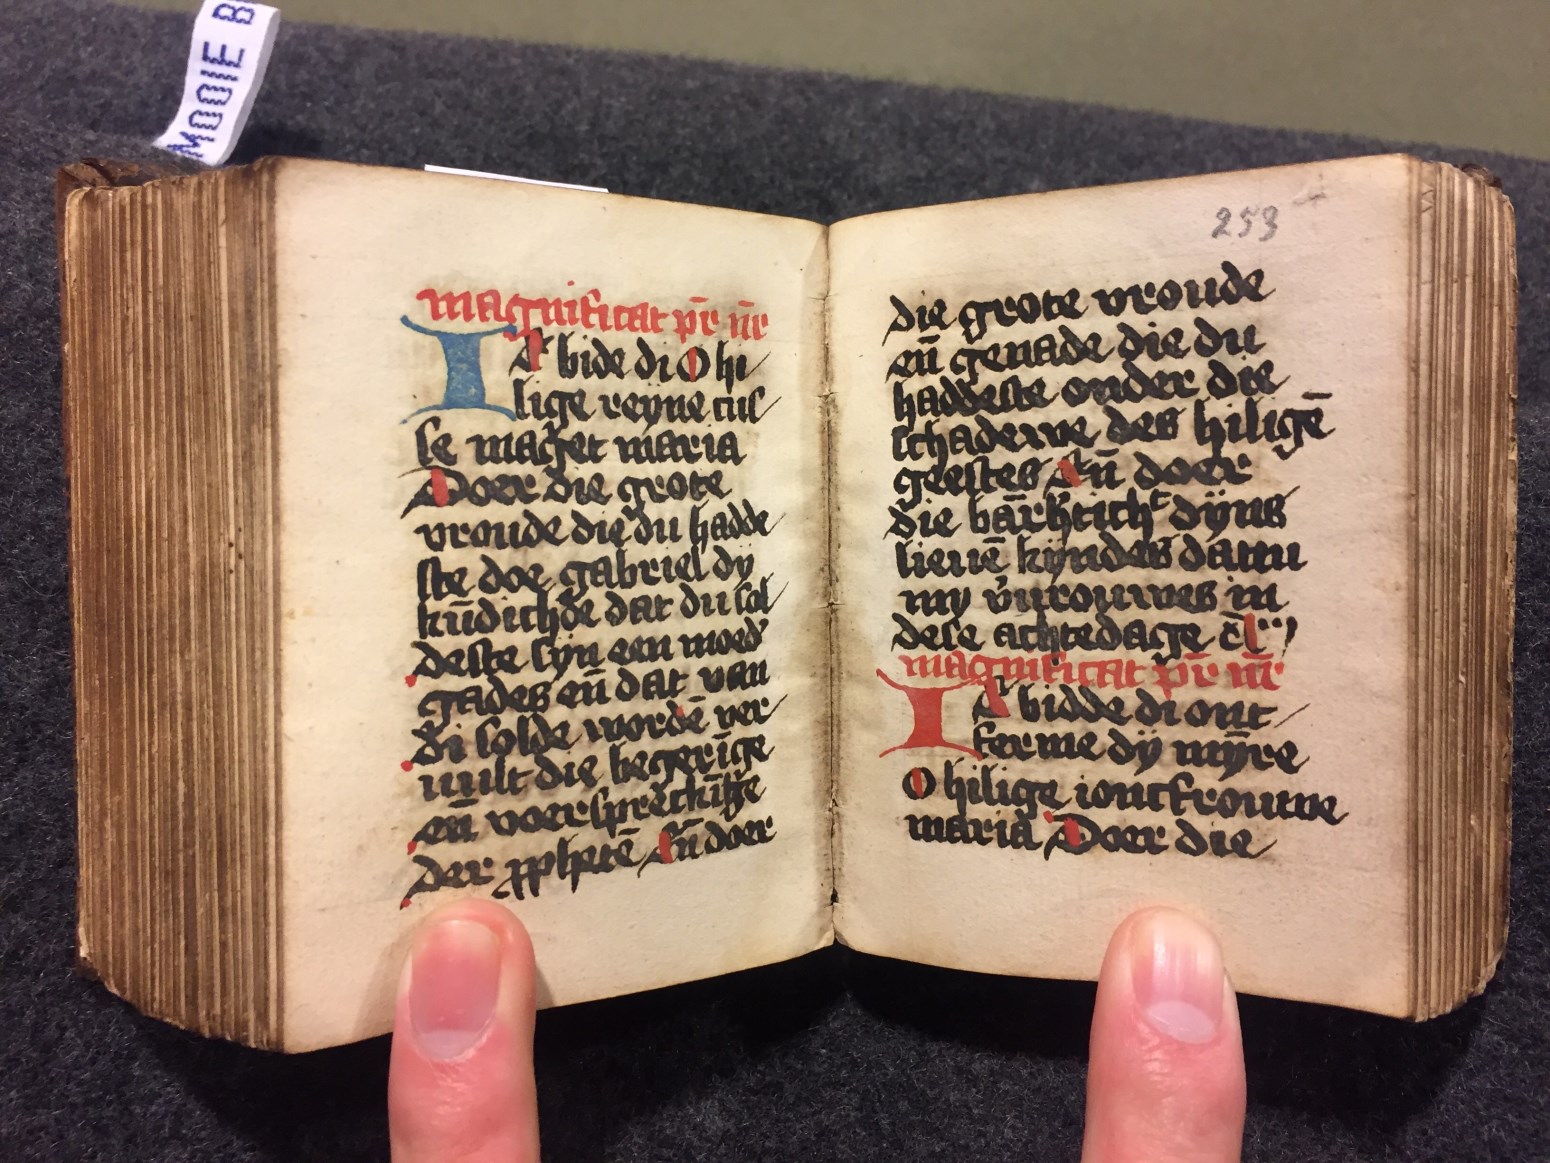 MOOIE B
magnificat pr̄ nr̄
Ic bide di O hi
lige reyne cus
se maget maria
Doer die grote
vroude die du hadde
ste doe gabriel dy
kūdichde dat du sol
deste syn een moed'
gades eñ dat van
di solde wordē ver
uult die begerīge
eñ voersprekīge
der pphetē Eñ doer
253
die grote vroude
eñ genade die du
haddeste onder die
schadewe des hiligē
geestes Eñ doer
die barh'tich' dyns
lieuē kyndes dattu
my v'urouwes in
dese achtedage
magnificat pr̄ nr̄
Ic bidde di ont
ferme dy mynre
O hilige ioncfrouwe
maria Doer die